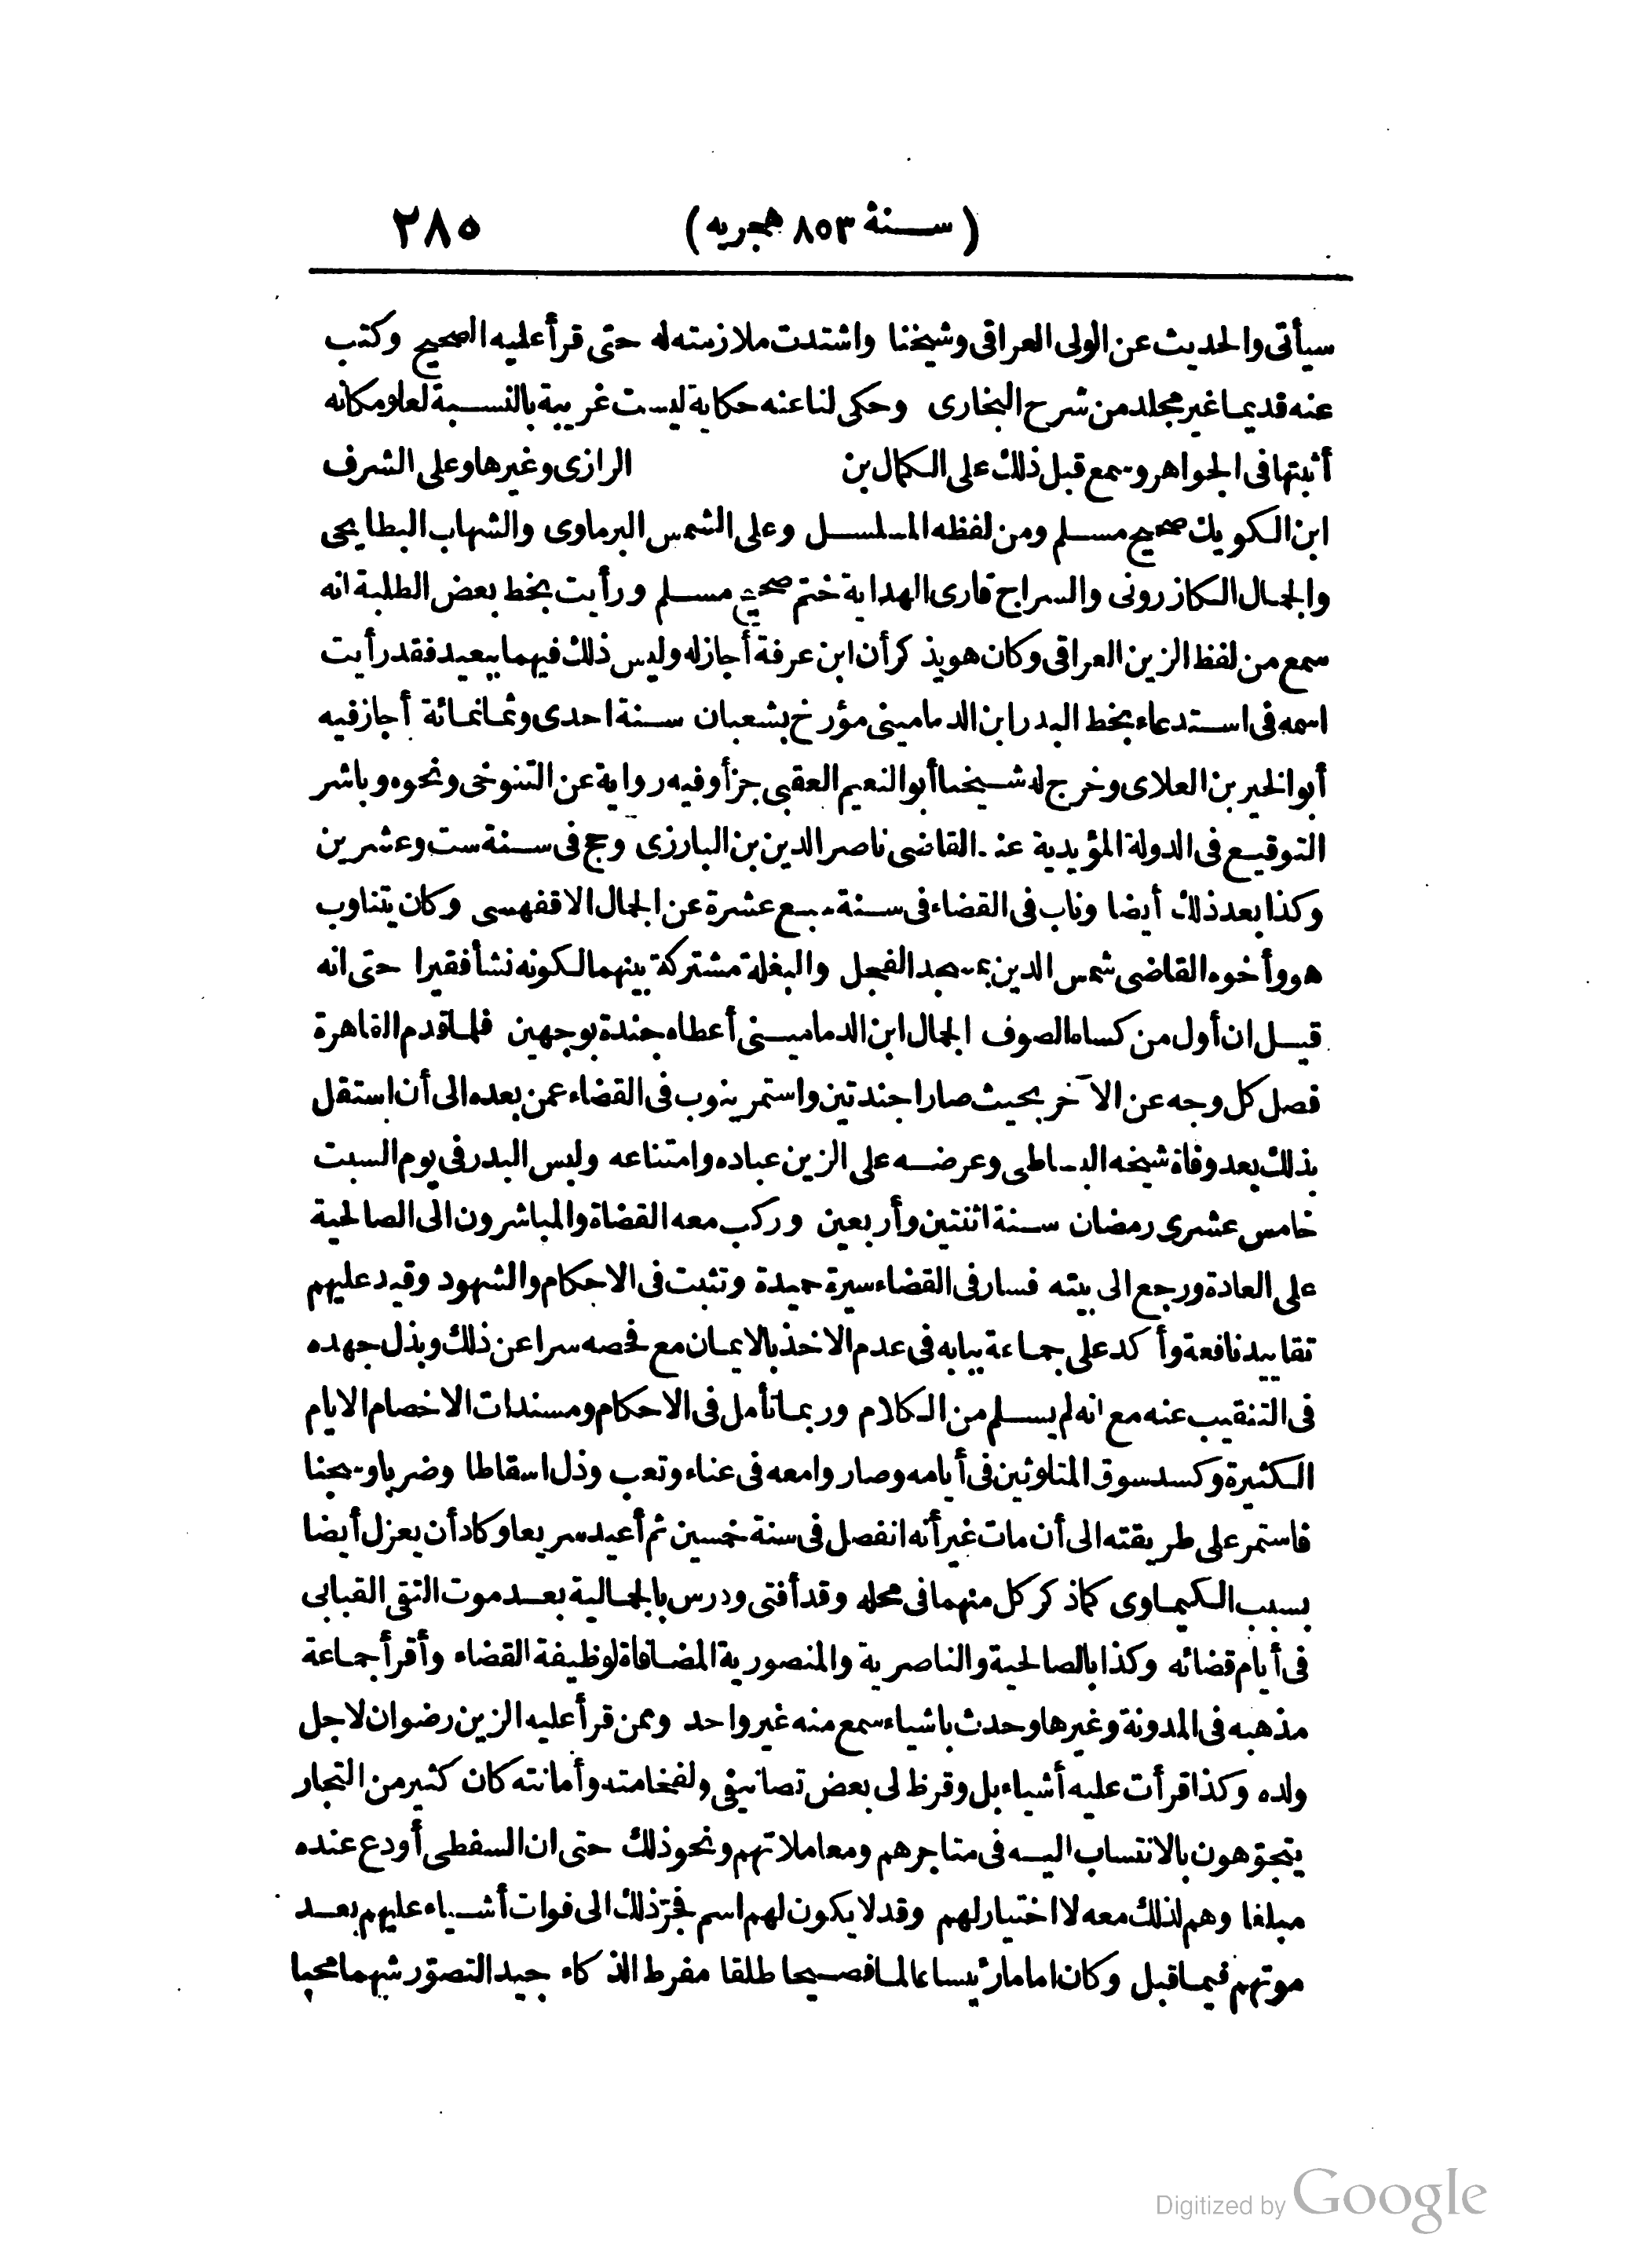 (سنة ٨٥٣ هجريه) ٢٨٥
سيأتى والحديث عن الولى العراقى وشيخنا واشتدت ملازمته له حتى قرأ عليه الصحيح وكتب
عنه قديما غير مجلد من شرح البخارى وحكى لنا عنه حكاية ليست غريبة بالنسبة لعلو مكانه
أثبتها فى الجواهر وسمع قبل ذلك على الكمال بن الرازى وغيرها وعلى الشرف
ابن الكويك صحيح مسلم ومن لفظه المسلسل وعلى الشمس البرماوى والشهاب البطايحى
والجمال الكازرونى والسراج قارى الهداية ختم صحيح مسلم ورأيت بخط بعض الطلبة انه
سمع من لفظ الزين العراقى وكان هو يذكر أن ابن عرفة أجاز له وليس ذلك فيهما ببعيد فقد رأيت
اسمه فى استدعاء بخط البدر ابن الدمامينى مؤرخ بشعبان سنة احدى وثمانمائة أجاز فيه
أبو الخير بن العلاى وخرج له شيخنا أبو النعيم العقبى جزأ وفيه رواية عن التنوخى ونحوه وباشر
التوقيع فى الدولة المؤيدية عند القاضى ناصر الدين بن البارزى وحج فى سنة ست وعشرين
وكذا بعد ذلك أيضا وناب فى القضاء فى سنة سبع عشرة عن الجمال الاقفهسى وكان يتناوب
هو وأخوه القاضى شمس الدين بمسجد الفجل والبغلة مشتركة بينهما لكونه نشأ فقيرا حتى انه
قيل ان أول من كساه الصوف الجمال ابن الدمامينى أعطاه جندة بوجهين فلما قدم القاهرة
فصل كل وجه عن الآخر بحيث صارا جندتين واستمر ينوب فى القضاء عمن بعده الى أن استقل
بذلك بعد وفاة شيخه البساطى وعرضه على الزين عباده وامتناعه ولبس البدر فى يوم السبت
خامس عشرى رمضان سنة اثنتين وأربعين وركب معه القضاة والمباشرون الى الصالحية
على العادة ورجع الى بيته فسار فى القضاء سيرة حميدة وتثبت فى الاحكام والشهود وقيد عليهم
تقاييد نافعة وأكد على جماعة ببابه فى عدم الاخذ بالايمان مع فحصه سرا عن ذلك وبذل جهده
فى التنقيب عنه مع انه لم يسلم من الكلام وربما تأمل فى الاحكام ومسندات الاخصام الايام
الكثيرة وكسد سوق المتلوثين فى أيامه وصاروا معه فى عناء وتعب وذل اسقاطا وضربا وسجنا
فاستمر على طريقته الى أن مات غير أنه انفصل فى سنة خمسين ثم أعيد سريعا وكاد أن يعزل أيضا
بسبب الكيماوى كما ذكر كل منهما فى محله وقد أفتى ودرس بالجمالية بعد موت التقى القبابى
فى أيام قضائه وكذا بالصالحية والناصرية والمنصورية المضافاة لوظيفة القضاء وأقرأ جماعة
مذهبه فى المدونة وغيرها وحدث باشياء سمع منه غير واحد وممن قرأ عليه الزين رضوان لاجل
ولده وكذا قرأت عليه أشياء بل وقرظ لى بعض تصانيفى ولفخامته وأمانته كان كثير من التجار
يتجوهون بالانتساب اليه فى متاجرهم ومعاملاتهم ونحو ذلك حتى ان السفطى أودع عنده
مبلغا وهم لذلك معه لا اختيار لهم وقد لا يكون لهم اسم فجر ذلك الى فوات أشياء عليهم بعد
موتهم فيما قبل وكان اماما رئيسا عالما فصيحا طلقا مفرط الذكاء جيد التصور شهما محبا
Digitized by Google